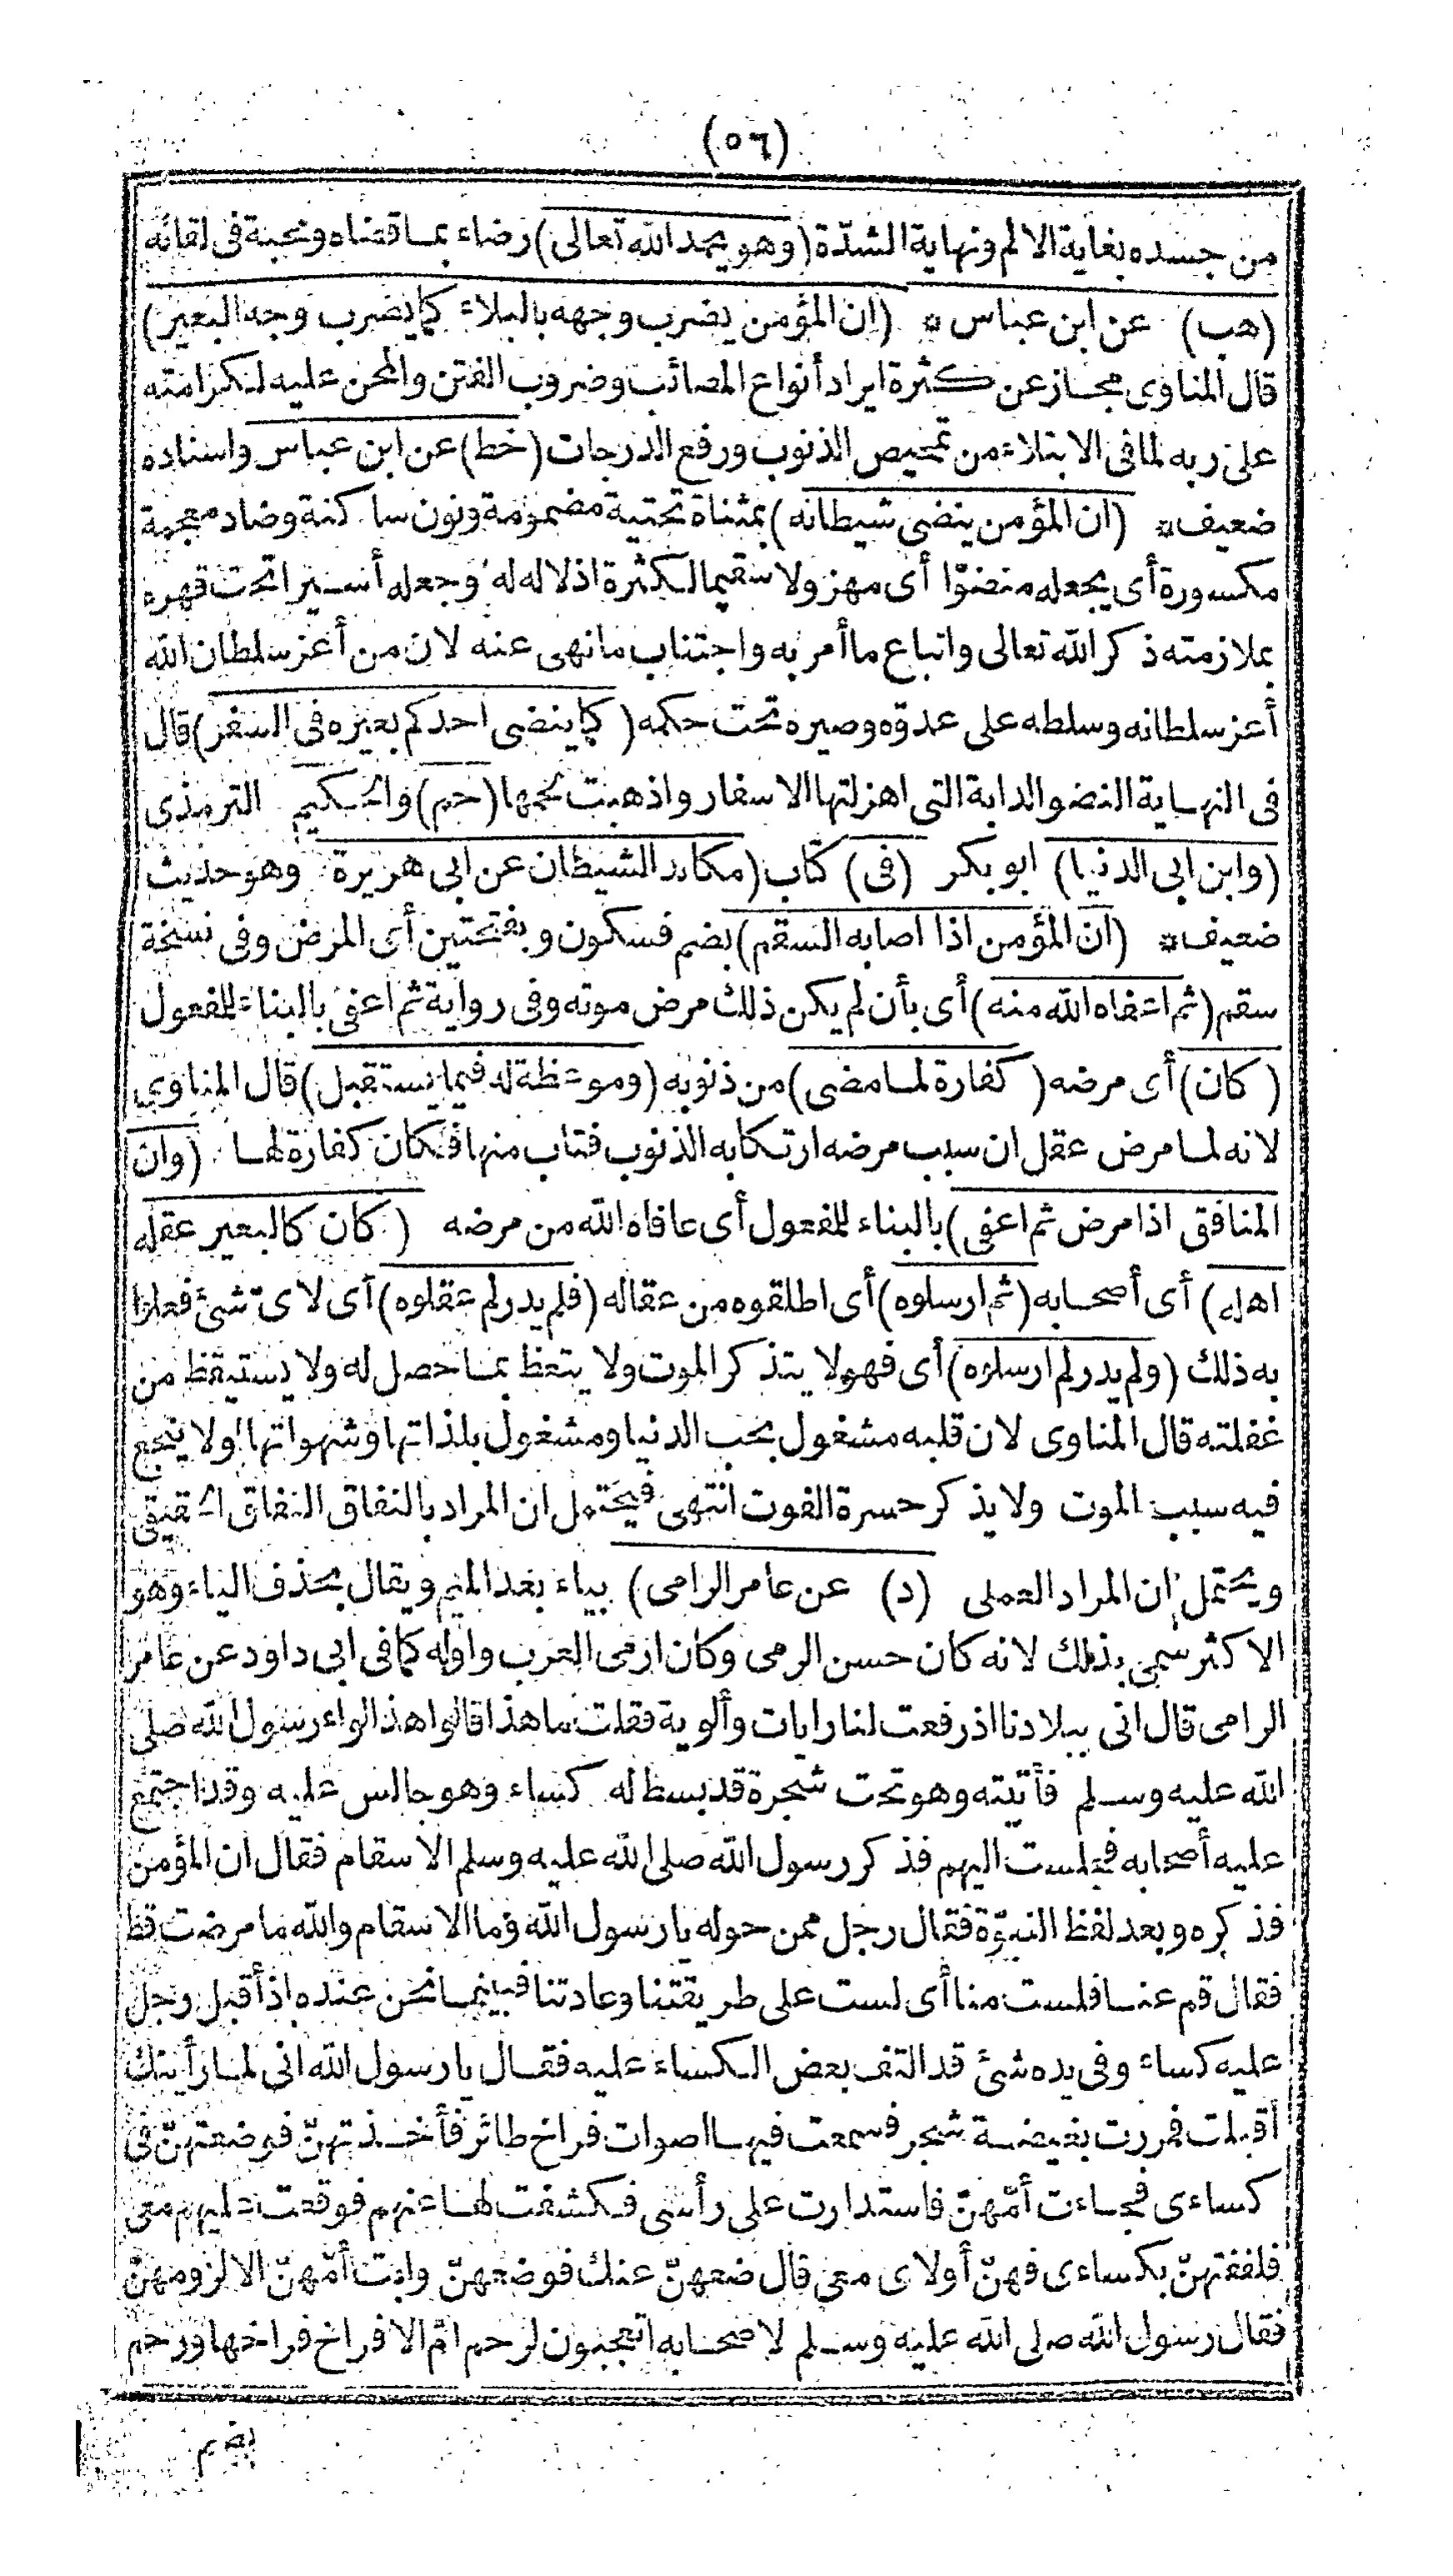 (٥٦)
من جسده بغاية الالم ونهاية الشدّة (وهو يحمد الله تعالى) رضاء بما قضاه ومحبة فى لقائه
(هب) عن ابن عباس * (ان المؤمن يضرب وجهه بالبلاء كما يضرب وجه البعير)
قال المناوى مجاز عن كثرة ايراد أنواع المصائب وضروب الفتن والمحن عليه لكرامته
على ربه لما فى الابتلاء من تمحيص الذنوب ورفع الدرجات (خط) عن ابن عباس واسناده
ضعيف * (ان المؤمن ينضى شيطانه) بمثناة تحتية مضمومة ونون ساكنة وضاد معجمة
مكسورة أى يجعله منضوّا أى مهزولا سقيما لكثرة اذلاله له وجعله أسيرا تحت قهره
بملازمته ذكر الله تعالى واتباع ما أمر به واجتناب ما نهى عنه لان من أعز سلطان الله
أعز سلطانه وسلطه على عدوّه وصيره تحت حكمه (كما ينضى احدكم بعيره فى السفر) قال
فى النهاية النضو الدابة التى اهزلتها الاسفار واذهبت لحمها (حم) والحكيم الترمذى
(وابن ابى الدنيا) ابو بكر (فى) كتاب (مكايد الشيطان عن ابى هريرة) وهو حديث
ضعيف * (ان المؤمن اذا اصابه السقم) بضم فسكون وبفتحتين أى المرض وفى نسخة
سقم (ثم اعفاه الله منه) أى بأن لم يكن ذلك مرض موته وفى رواية ثم اعفى بالبناء للفعول
(كان) أى مرضه (كفارة لما مضى) من ذنوبه (وموعظة له فيما يستقبل) قال المناوى
لانه لما مرض عقل ان سبب مرضه ارتكابه الذنوب فتاب منها فكان كفارة لها (وان
المنافق اذا مرض ثم اعفى) بالبناء للفعول أى عافاه الله من مرضه (كان كالبعير عقله
اهله) أى أصحابه (ثم ارسلوه) أى اطلقوه من عقاله (فلم يدر لم عقلوه) أى لاىّ شئ فعلوا
به ذلك (ولم يدر لم ارسلوه) أى فهو لا يتذكر الموت ولا يتعظ بما حصل له ولا يستيقظ من
غفلته قال المناوى لان قلبه مشغول بحب الدنيا ومشغول بلذاتها وشهواتها ولا ينجع
فيه سبب الموت ولا يذكر حسرة الفوت انتهى فيحتمل ان المراد بالنفاق النفاق الحقيقى
ويحتمل ان المراد العملى (د) عن عامر الرامى) بياء بعد الميم ويقال بحذف الياء وهو
الاكثر سمى بذلك لانه كان حسن الرمى وكان ارمى العرب واوله كما فى ابى داود عن عامر
الرامى قال انى ببلادنا اذ رفعت لنا رايات وألوية فقلت ما هذا قالوا هذا لواء رسول الله صلى
الله عليه وسلم فأتيته وهو تحت شجرة قد بسط له كساء وهو جالس عليه وقد اجتمع
عليه أصحابه فجلست اليهم فذكر رسول الله صلى الله عليه وسلم الاسقام فقال ان المؤمن
فذكره وبعد لفظ النبوّة فقال رجل ممن حوله يا رسول الله وما الاسقام والله ما مرضت قط
فقال قم عنا فلست منا أى لست على طريقتنا وعادتنا فبينما نحن عنده اذ أقبل رجل
عليه كساء وفى يده شئ قد التف بعض الكساء عليه فقال يا رسول الله انى لما رأيتك
أقبلت فمررت بغيضة شجر فسمعت فيها اصوات فراخ طائر فأخذتهنّ فوضعتهنّ فى
كساءى فجاءت أمّهنّ فاستدارت على رأسى فكشفت لها عنهم فوقعت عليهم معى
فلففتهنّ بكساءى فهنّ أولاى معى قال ضعهنّ عنك فوضعهنّ وابت أمّهنّ الا لزومهنّ
فقال رسول الله صلى الله عليه وسلم لاصحابه اتعجبون لرحم امّ الافراخ فراخها ورحم
بضم